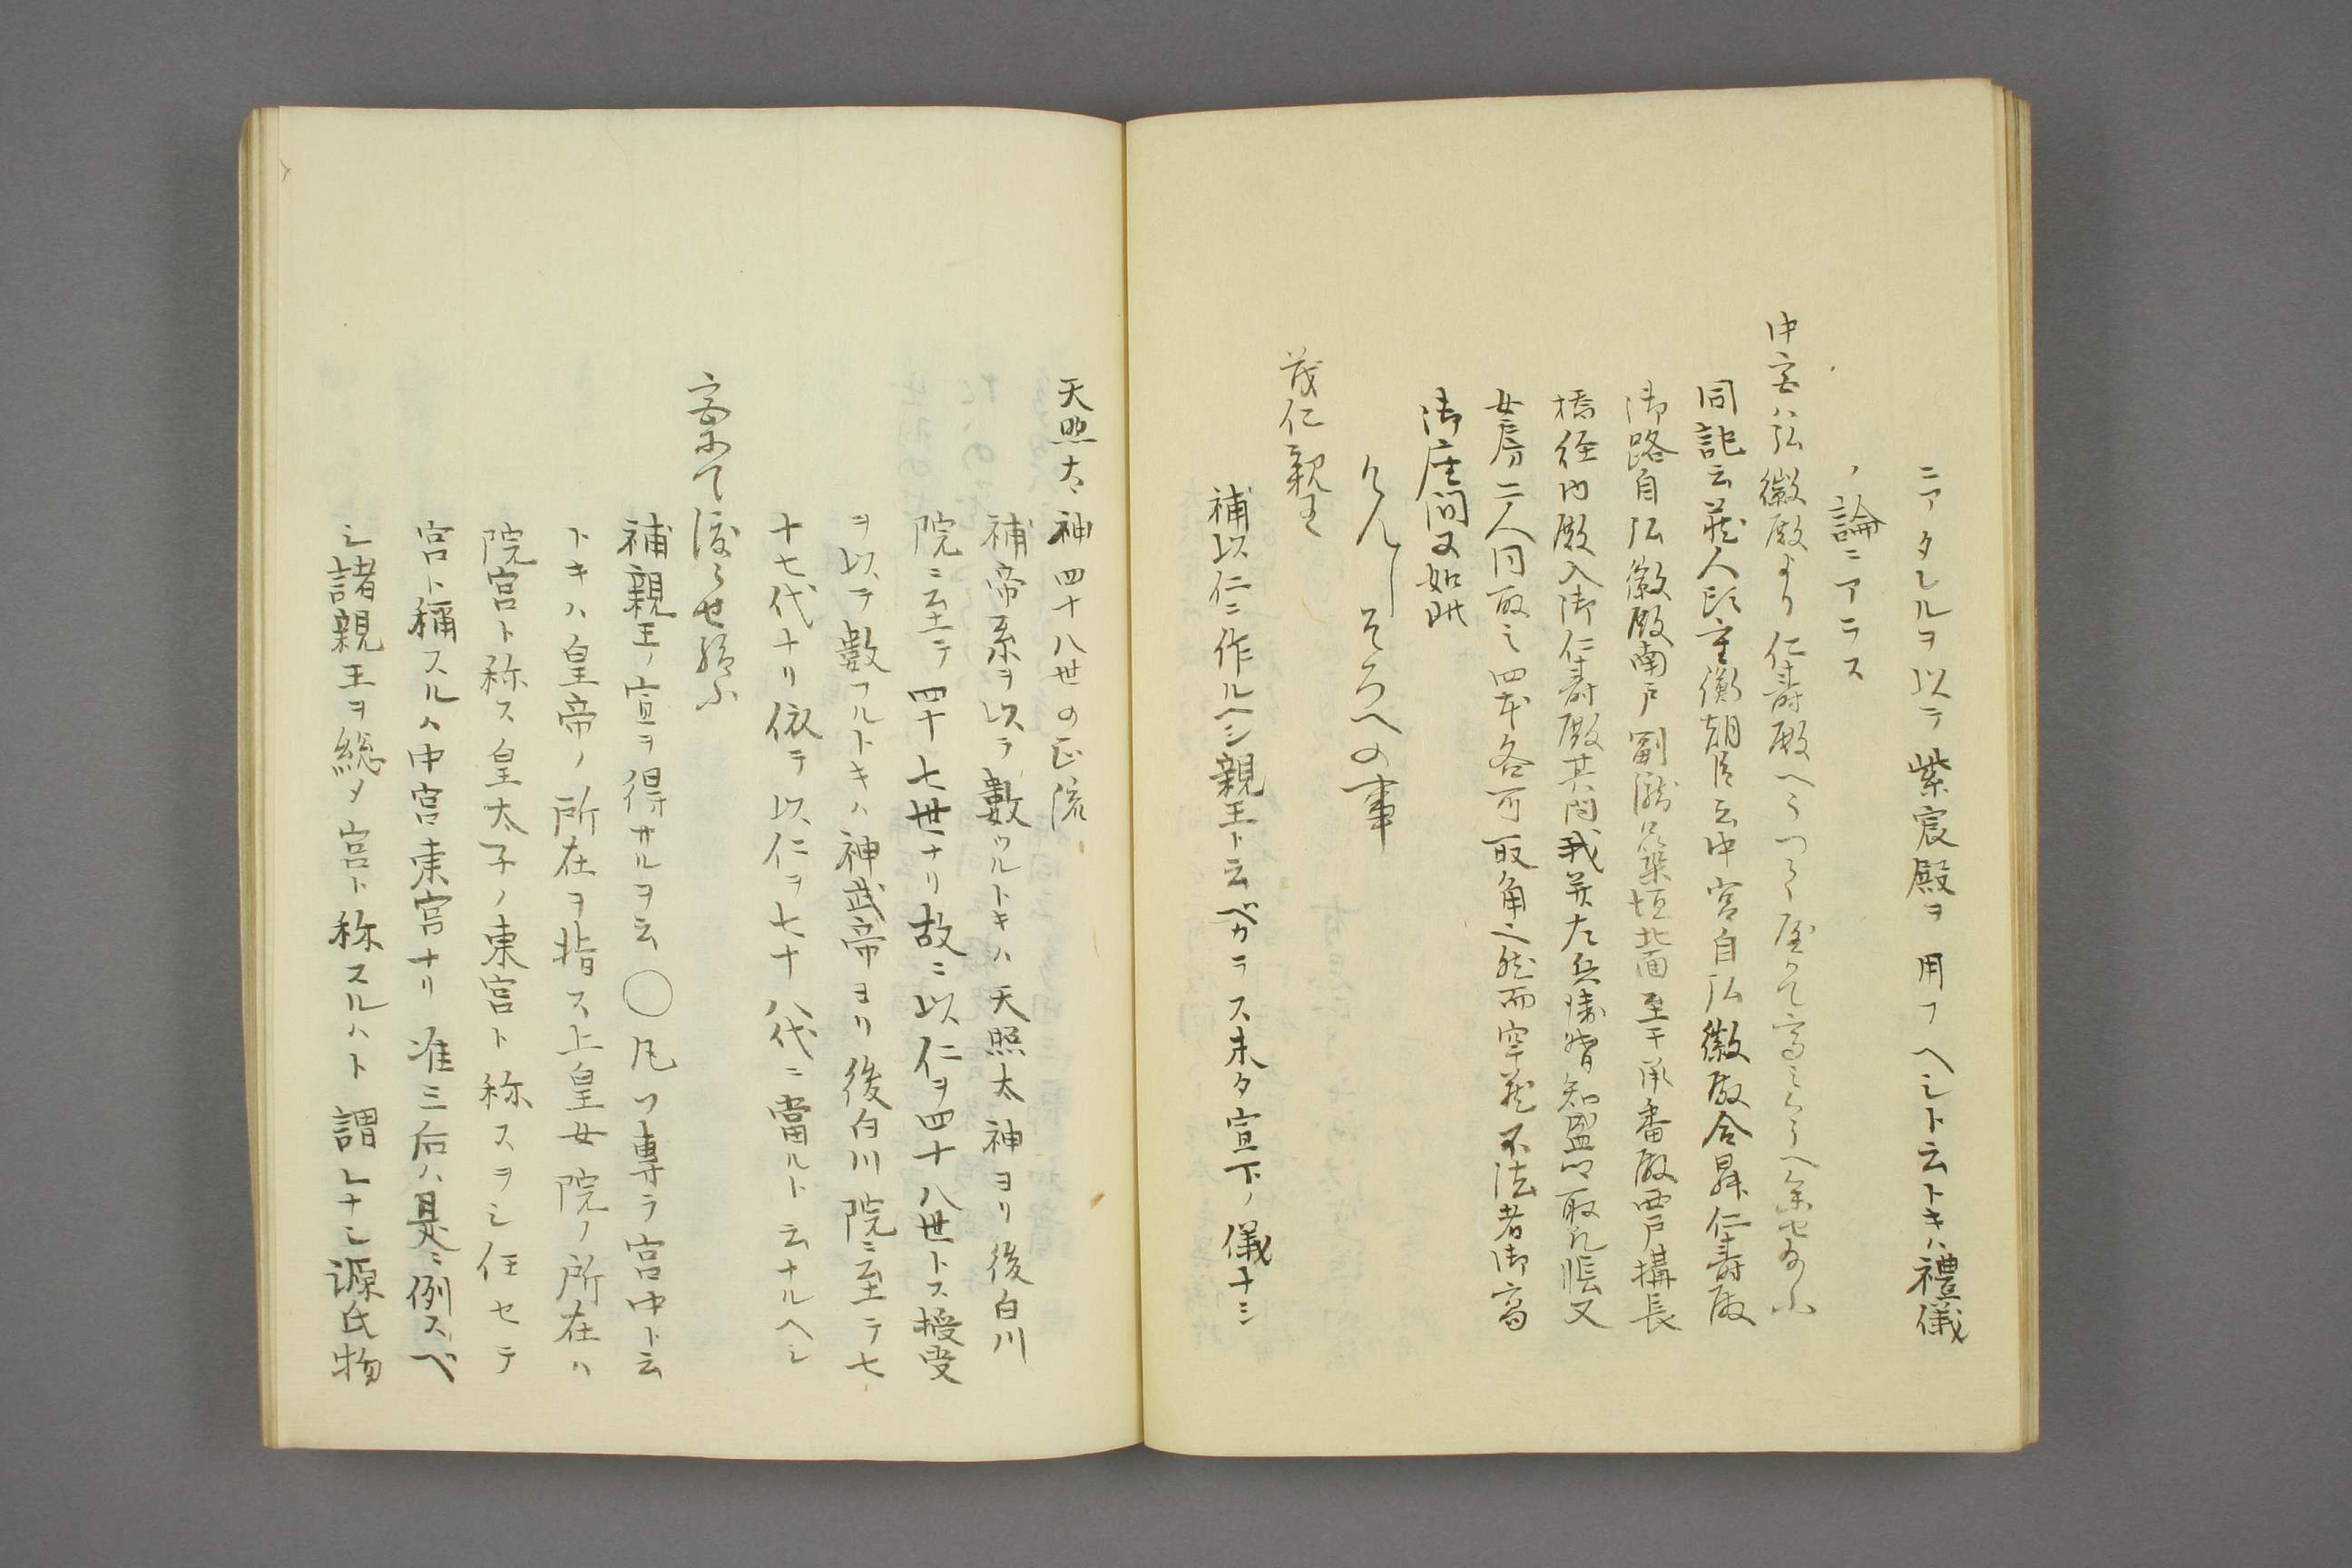 ニアタレルヲ以テ紫宸殿ヲ用フヘシト云トキハ禮儀
ノ論ニアラス
中宮ハ弘徽殿より仁壽殿へうつらせ給ふ
同記云蔵人頭重衡朝臣云中宮自弘徽殿令昇仁壽殿
御路自弘徽殿南戸副瀧口築垣北面至于承香殿西戸構長
橋経内殿入御仁壽殿其間我并左兵衛督知盛卿取几帳又
女房二人同取之四本各可取角之然而窄蔵不法者御高
御座間又如此
けんしそろへの事
茂仁親王
補以仁ニ作ルヘシ親王ト云ベカラス未タ宣下ノ儀ナシ
天照太神四十八世の正流
補帝系ヲ以テ數ウルトキハ天照太神ヨリ後白川
院ニ至テ四十七世ナリ故ニ以仁ヲ四十八世トス授受
ヲ以テ數フルトキハ神武帝ヨリ後白川院ニ至テ七
十七代ナリ依テ以仁ヲ七十八代ニ當ルト云ナルヘシ
宮にて渡らせ給ふ
補親王ノ宣ヲ得サルヲ云〇凡ソ専ラ宮中ト云
トキハ皇帝ノ所在ヲ指ス上皇女院ノ所在ハ
院宮ト称ス皇太子ノ東宮ト称スヲシ任セテ
宮ト稱スルハ中宮東宮ナリ准三后ハ是ニ例スベ
シ諸親王ヲ総タ宮ト称スルハト謂レナシ源氏物